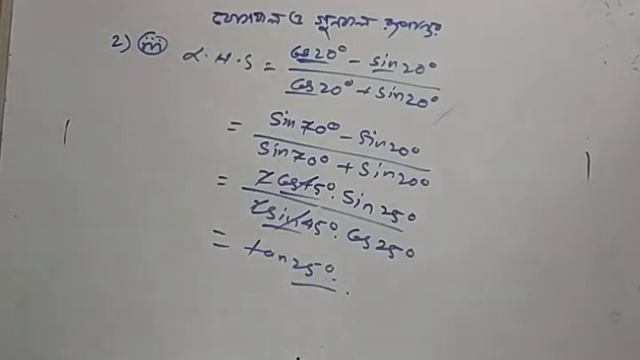 যোগফল ও গুণফল
2) iii) L.H.S = cos20° - sin20° / cos20° + sin20°
= sin70° - sin20° / sin70° + sin20°
= 2cos45°. sin25° / 2sin45°. cos25°
= tan25°.